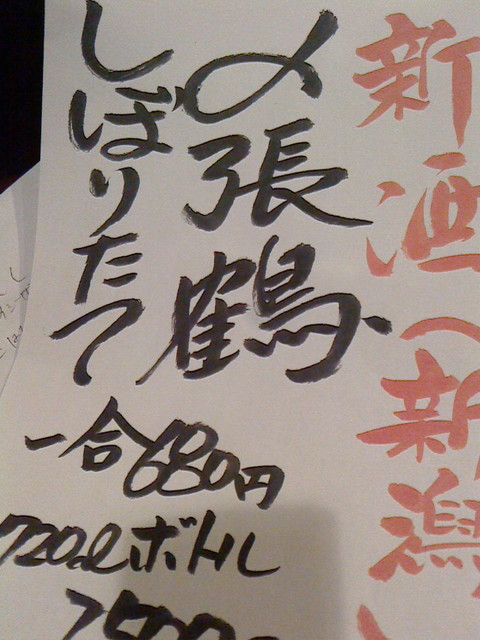 新酒(新潟)
〆張鶴
しぼりたて
一合680円
720mlボトル